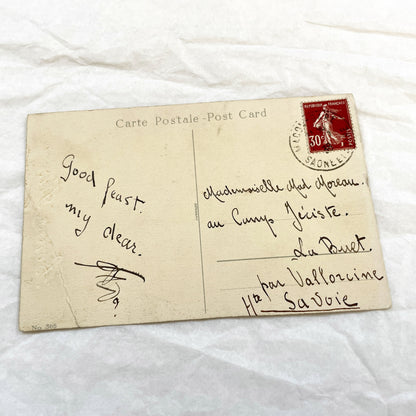 Carte Postale - Post Card
REPUBLIQUE FRANÇAISE
30c
POSTES
MACON
SAONE-ET-L
Good feast.
my dear.
Mademoiselle Mad Moreau.
au Camp Jéciste.
La Buet.
par Vallorcine
Hte Savoie
No. 360